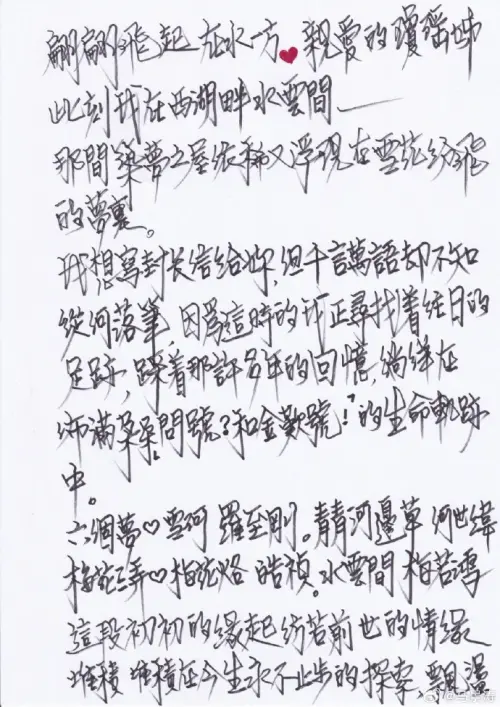 翩翩飛起 在水一方 ♥ 親愛的瓊瑤姊
此刻我在西湖畔水雲間——
那間築夢之屋依稀又浮現在雪花紛飛
的夢裏。
我想寫封长信給妳,但千言萬語却不知
從何落筆,因為這時的我正尋找着往日的
足跡,踩着那許多年的回憶,徜徉在
佈滿朵朵問號?和金歎號!的生命軌跡
中。
六個夢♡雪珂 羅至剛。青青河邊草 何世緯
梅花三弄♡梅花烙 皓禎。水雲間 梅若鴻
這段初初的緣起彷若前世的情缘
堆積 堆積在今生永不止步的探索,飄盪